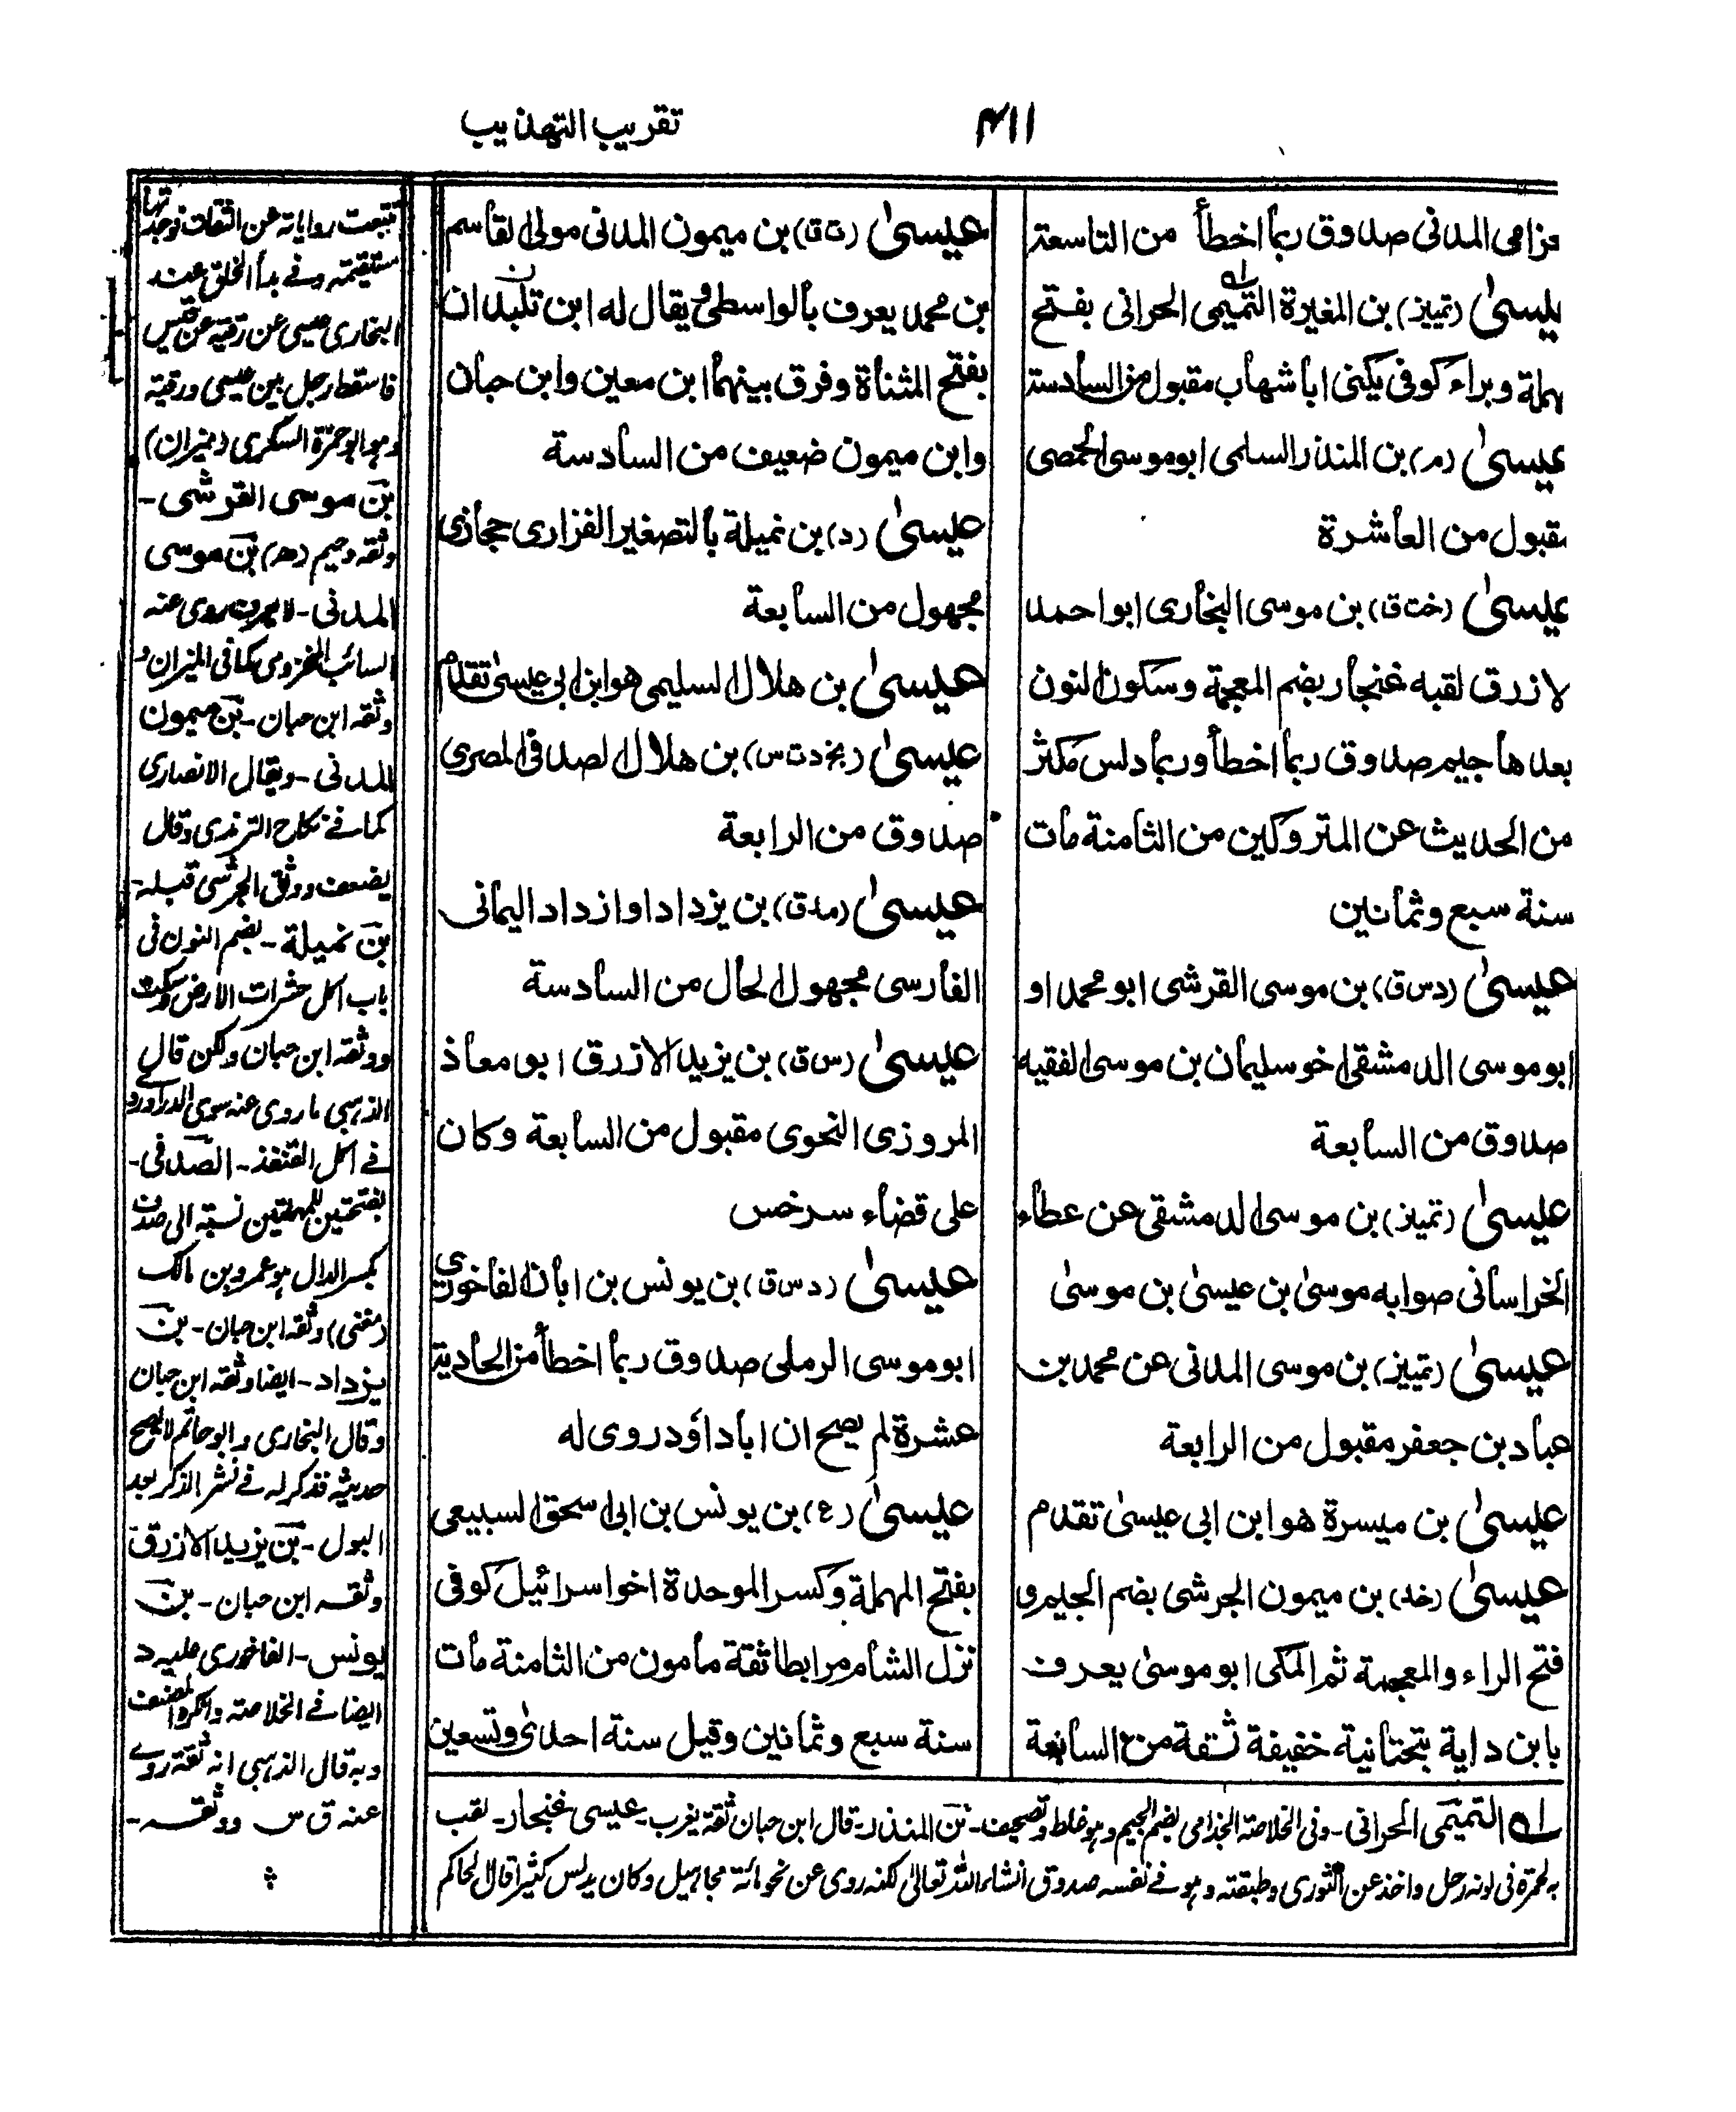 ٤١١
تقريب التهذيب
حزامى المدنى صدوق ربما اخطأ من التاسعة
عيسىٰ (تمييز) بن المغيرة التميمى الحرانى بفتح
مهملة وبراء كوفى يكنى ابا شهاب مقبول من السادسة
عيسىٰ (م) بن المنذر السلمى ابو موسى الحمصى
مقبول من العاشرة
عيسىٰ (خت ق) بن موسى البخارى ابو احمد
لازرق لقبه غنجار بضم المعجمة وسكون النون
بعدها جيم صدوق ربما اخطأ وربما دلس مكثر
من الحديث عن المتروكين من الثامنة مات
سنة سبع وثمانين
عيسىٰ (د س ق) بن موسى القرشى ابو محمد او
ابو موسى الدمشقى اخو سليمان بن موسى الفقيه
صدوق من السابعة
عيسىٰ (تمييز) بن موسى الدمشقى عن عطاء
الخراسانى صوابه موسىٰ بن عيسىٰ بن موسىٰ
عيسىٰ (تمييز) بن موسى المدنى عن محمد بن
عباد بن جعفر مقبول من الرابعة
عيسىٰ بن ميسرة هو ابن ابى عيسىٰ تقدم
عيسىٰ (خد) بن ميمون الجرشى بضم الجيم و
فتح الراء والمعجمة ثم المكى ابو موسىٰ يعرف
بابن داية بتحتانية خفيفة ثقة من السابعة
عيسىٰ (ت ق) بن ميمون المدنى مولى القاسم
بن محمد يعرف بالواسطى ويقال له ابن تليدان
بفتح المثناة وفرق بينهما ابن معين وابن حبان
وابن ميمون ضعيف من السادسة
عيسىٰ (د) بن نميلة بالتصغير الفزارى حجازى
مجهول من السابعة
عيسىٰ بن هلال السليمى هو ابن ابى عيسىٰ تقدم
عيسىٰ (بخ د ت س) بن هلال الصدفى المصرى
صدوق من الرابعة
عيسىٰ (مد ق) بن يزداد او ازداد اليمانى
الفارسى مجهول الحال من السادسة
عيسىٰ (س ق) بن يزيد الازرق ابو معاذ
المروزى النحوى مقبول من السابعة وكان
على قضاء سرخس
عيسىٰ (د س ق) بن يونس بن ابان الفاخورى
ابو موسى الرملى صدوق ربما اخطأ من الحادية
عشرة لم يصح ان ابا داؤد روى له
عيسىٰ (ع) بن يونس بن ابى اسحق السبيعى
بفتح المهملة وكسر الموحدة اخو اسرائيل كوفى
نزل الشام مرابطا ثقة مأمون من الثامنة مات
سنة سبع وثمانين وقيل سنة احدىٰ وتسعين
تتبعت رواياته عن الثقات فوجدتها
مستقيمة وفى بدأ الخلق عند
البخارى عيسى عن رقبة عن قيس
فاسقط رجل بين عيسى ورقبة
وهو ابو حمزة السكرى (ميزان)
بن موسى القرشى -
وثقه دحيم (ھ) بن موسى
المدنى - لا يعرف روى عنه
السائب المخزومى كما فى الميزان و
وثقه ابن حبان - بن ميمون
المدنى - ويقال الانصارى
كما فى نكاح الترمذى وقال
يضعف ووثق الجرشى قبله -
بن نميلة - بضم النون فى
باب اكل حشرات الارض وسكت
ووثقه ابن حبان ولكن قال
الذهبى ما روى عنه سوى الدراوردى
فى اكل القنفذ - الصدفى -
بفتحتين للمهملتين نسبة الى صدف
بكسر الدال هو عمرو بن مالك
(مغنى) وثقه ابن حبان - بن
يزداد - ايضا وثقه ابن حبان
وقال البخارى وابو حاتم لا يصح
حديثه فذكر له فى نشر الذكر بعد
البول - بن يزيد الازرق
وثقه ابن حبان - بن
يونس - الفاخورى عليه د
ايضا فى الخلاصة وانكره المصنف
وبه قال الذهبى انه ثقة روى
عنه ق س ووثقه -
له التميمى الحرانى - وفى الخلاصة الجذامى بضم الجيم وهو غلط وتصحيف - بن المنذر - قال ابن حبان ثقة يغرب - عيسى غنجار - لقب
به لحمرة فى لونه رحل واخذ عن الثورى وطبقته وهو فى نفسه صدوق انشاء الله تعالىٰ لكنه روى عن نحو مائة مجاهيل وكان يدلس كثيرا قال الحاكم